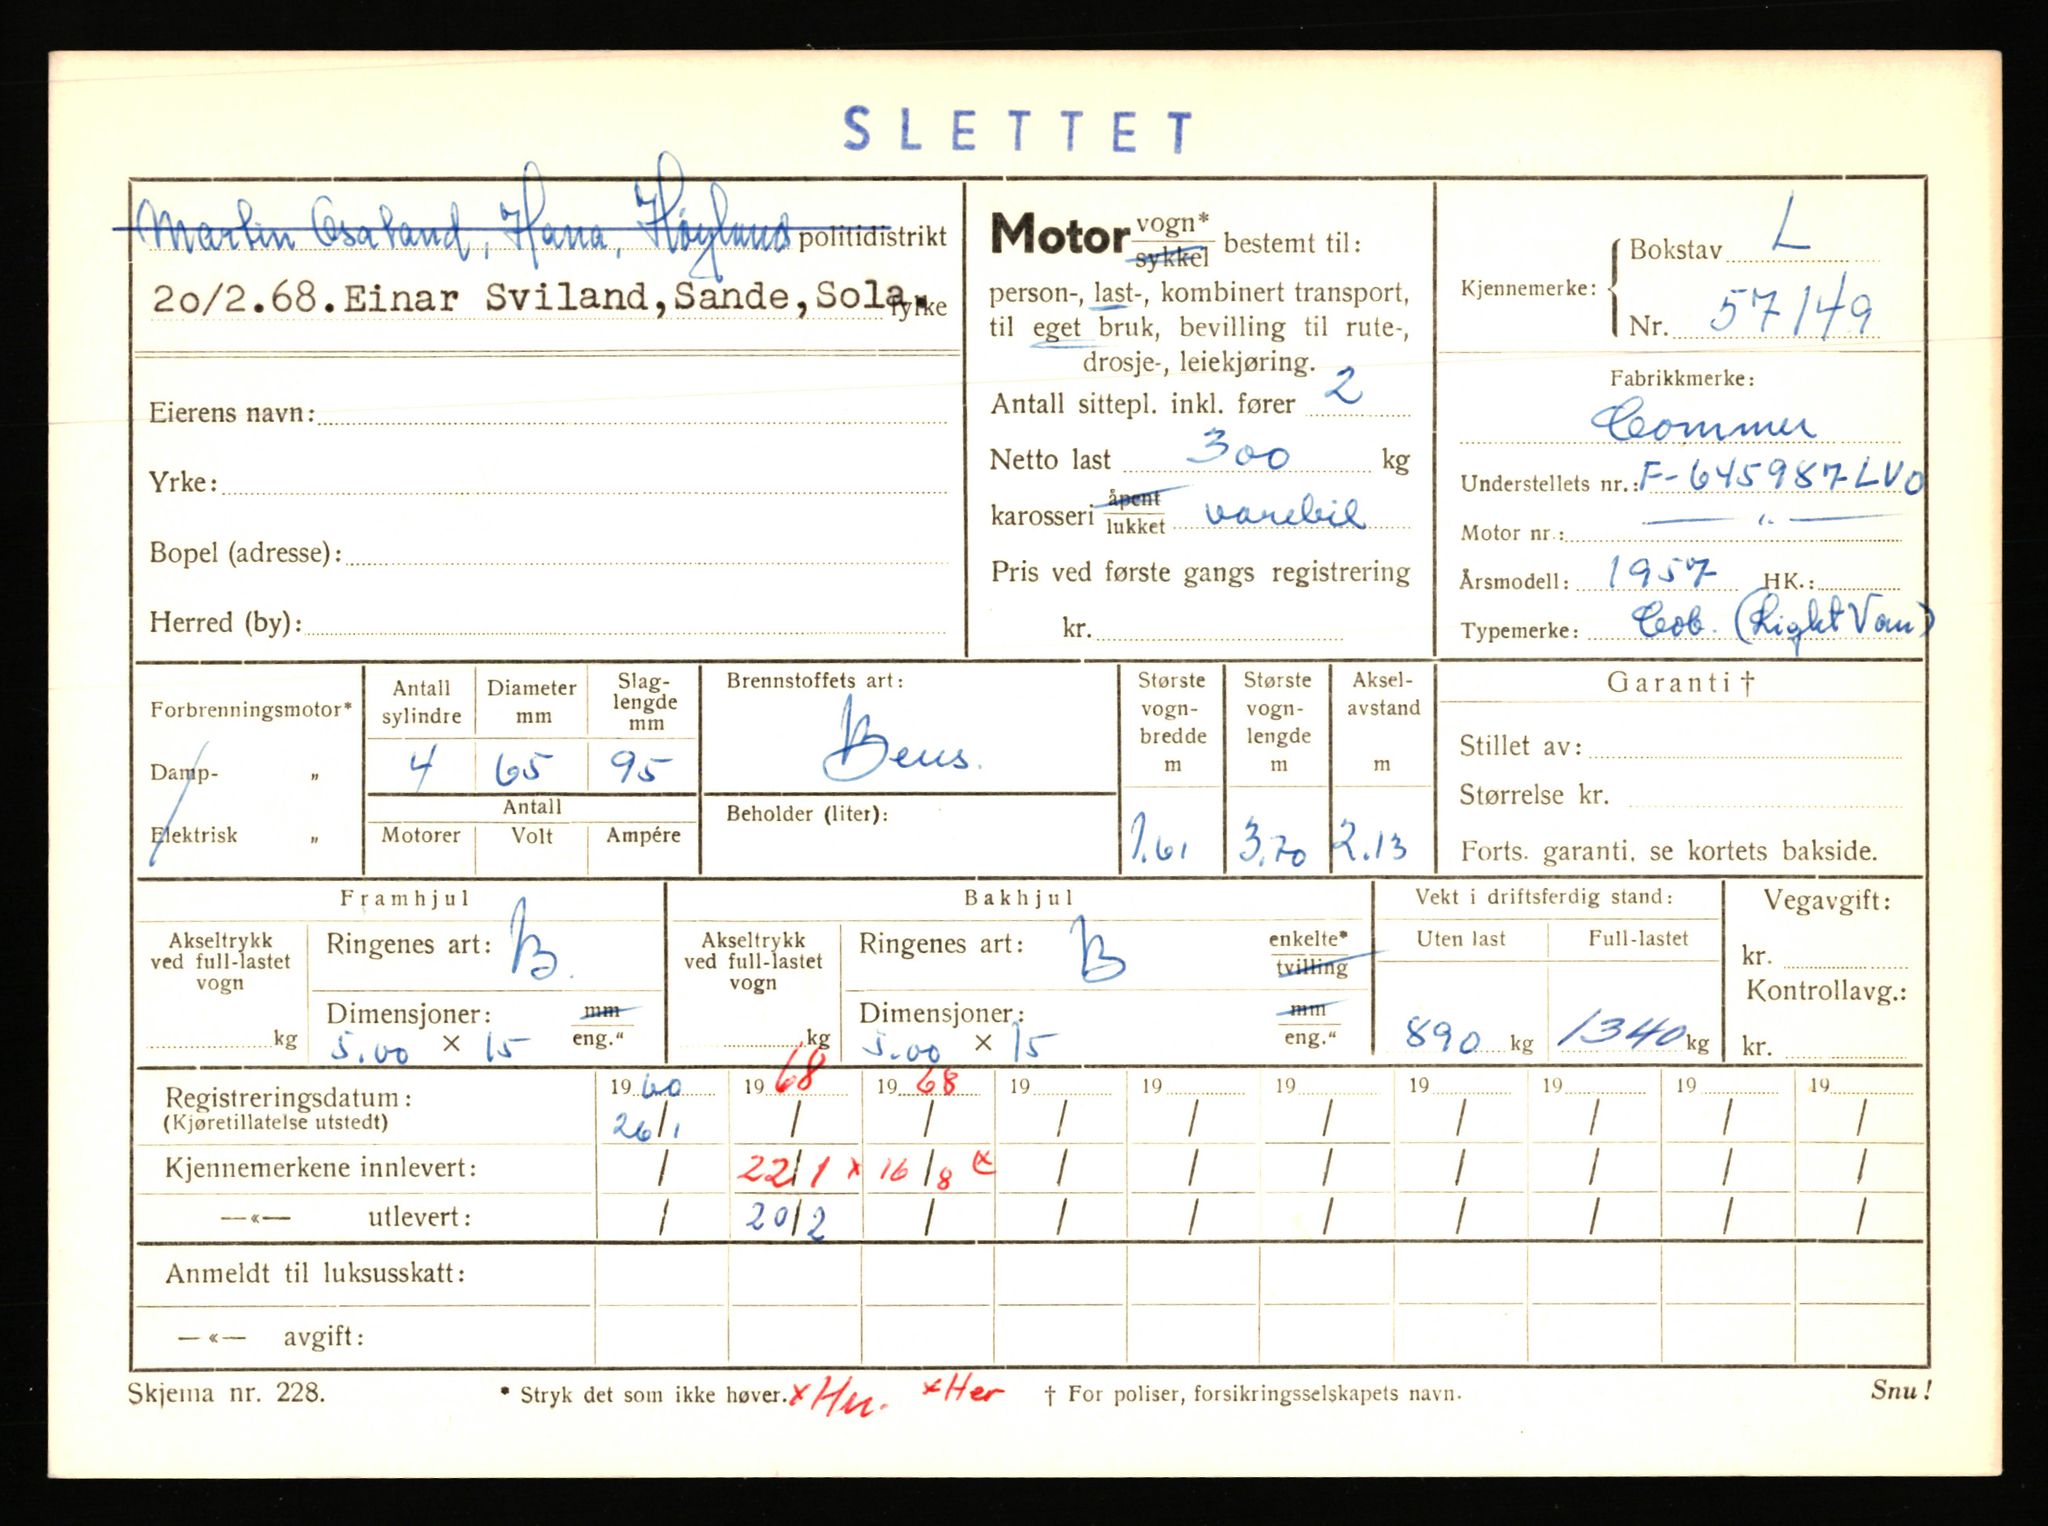 SLETTET
Martin Osaland, Hana, Høyland politidistrikt
20/2.68. Einar Sviland, Sande, Sola. fylke
Eierens navn:
Yrke:
Bopel (adresse):
Herred (by):
Motor vogn* sykkel bestemt til:
person-, last-, kombinert transport,
til eget bruk, bevilling til rute-,
drosje-, leiekjøring.
Antall sittepl. inkl. fører 2
Netto last 300 kg
karosseri åpent lukket varebil
Pris ved første gangs registrering
kr.
Kjennemerke: Bokstav L
Nr. 57149
Fabrikkmerke:
Commer
Understellets nr.: F-645987-LVO
Motor nr.: — " —
Årsmodell: 1957 HK.:
Typemerke: Cob. (Light Van)
Forbrenningsmotor*
Damp- "
Elektrisk "
Antall sylindre
Diameter mm
Slag-lengde mm
4 65 95
Antall
Motorer Volt Ampére
Brennstoffets art:
Bens.
Beholder (liter):
Største vogn-bredde m
1.61
Største vogn-lengde m
3.70
Aksel-avstand m
2.13
Garanti †
Stillet av:
Størrelse kr.
Forts. garanti, se kortets bakside.
Framhjul
Akseltrykk ved full-lastet vogn
kg
Ringenes art: B.
Dimensjoner: mm
5.00 × 15 eng."
Bakhjul
Akseltrykk ved full-lastet vogn
kg
Ringenes art: B enkelte* tvilling
Dimensjoner: mm
5.00 × 15 eng."
Vekt i driftsferdig stand:
Uten last Full-lastet
890 kg 1340 kg
Vegavgift:
kr.
Kontrollavg.:
kr.
Registreringsdatum: 1960 1968 1968 19 19 19 19 19 19 19
(Kjøretillatelse utstedt) 26/1 / / / / / / / / /
Kjennemerkene innlevert: / 22/1 x 16/8 x / / / / / / /
—«— utlevert: / 20/2 / / / / / / / /
Anmeldt til luksusskatt:
—«— avgift:
Skjema nr. 228. * Stryk det som ikke høver. x Her. x Her † For poliser, forsikringsselskapets navn. Snu!